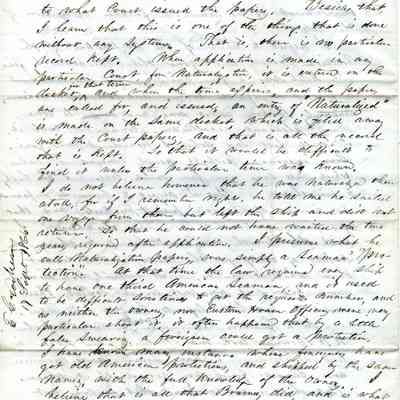 to what Court issued the papers. Besides that
I learn that this is one of the things that is done
without any System. That is, there is no particular
record kept. When application is made in any
particular Court for Naturalization, it is entered on the
docket, and when the time expires and the papers
in that term
are called for, and issued, an entry of "Naturalized"
is made on the same docket which is filed away
with the Court papers, and that is all the record
that is kept. So that it would be difficult to
find it unless the particular time was known.
I do not believe however that he was Naturalized then
at all, for if I remember right, he told me he sailed
one voyage from there but left the ship and did not
return. So that he would not have waited the two
years required after application. I presume what he
calls Naturalization papers was simply a Seaman's "Pro-
tection". At that time the law required every Ship
to have one third American Seaman, and it used
to be difficult sometimes to get the requisite number, and
as neither the owners, nor Custom House Officers were very
particular about it, it often happened that by a little
false swearing a foreigner could get a protection.
I have known many instances where foreigners have
got old American protections, and shipped by the same
Name, with the full knowledge of the owners.
I believe that is all that Brown did and is what
17 Sept 1866